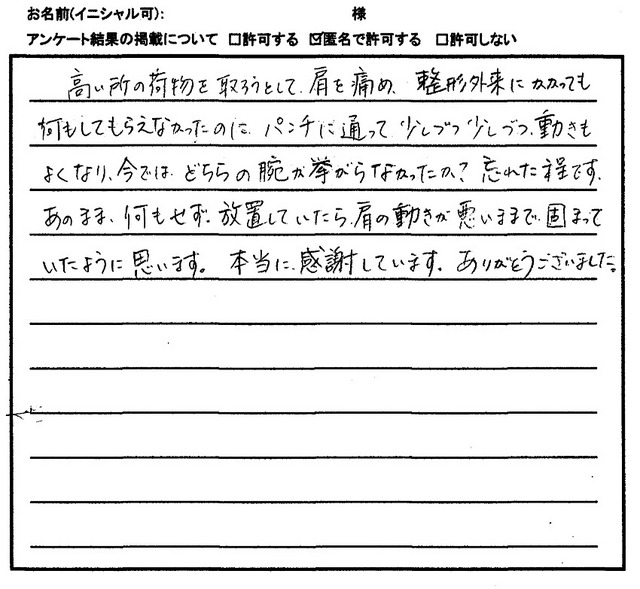 お名前(イニシャル可): 様
アンケート結果の掲載について □許可する ☑匿名で許可する □許可しない
高い所の荷物を取ろうとして、肩を痛め、整形外来にかかっても
何もしてもらえなかったのに、パンチに通って、少しづつ少しづつ、動きも
よくなり、今では、どちらの腕が挙がらなかったか？忘れた程です。
あのまま、何もせず、放置していたら、肩の動きが悪いままで、固まって
いたように思います。本当に、感謝しています。ありがとうございました。